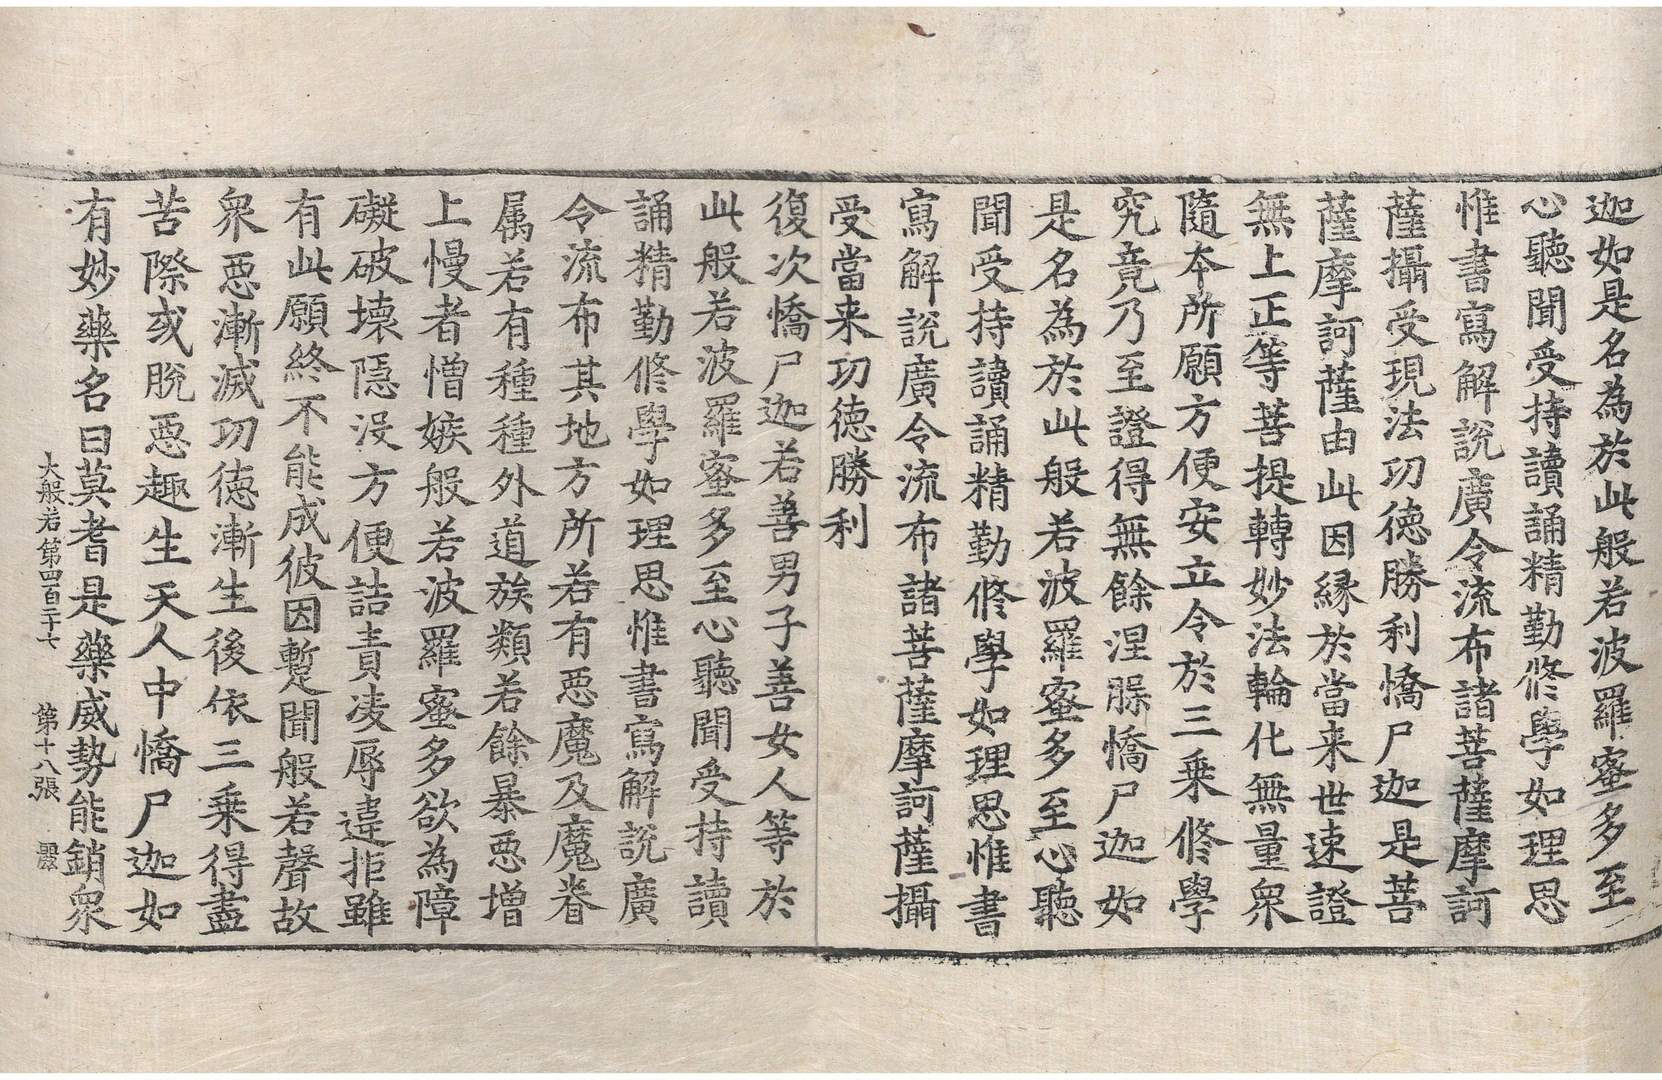 迦如是名為於此般若波羅蜜多至
心聽聞受持讀誦精勤修學如理思
惟書寫解說廣令流布諸菩薩摩訶
薩攝受現法功德勝利憍尸迦是菩
薩摩訶薩由此因緣於當来世速證
無上正等菩提轉妙法輪化無量衆
隨本所願方便安立令於三乘修學
究竟乃至證得無餘涅槃憍尸迦如
是名為於此般若波羅蜜多至心聽
聞受持讀誦精勤修學如理思惟書
寫解說廣令流布諸菩薩摩訶薩攝
受當来功德勝利
復次憍尸迦若善男子善女人等於
此般若波羅蜜多至心聽聞受持讀
誦精勤修學如理思惟書寫解說廣
令流布其地方所若有惡魔及魔眷
属若有種種外道族類若餘暴惡增
上慢者憎嫉般若波羅蜜多欲為障
礙破壞隱沒方便詰責凌辱違拒雖
有此願終不能成彼因暫聞般若聲故
衆惡漸滅功德漸生後依三乘得盡
苦際或脫惡趣生天人中憍尸迦如
有妙藥名曰莫耆是藥威勢能銷衆
大般若第四百二十七 第十八張